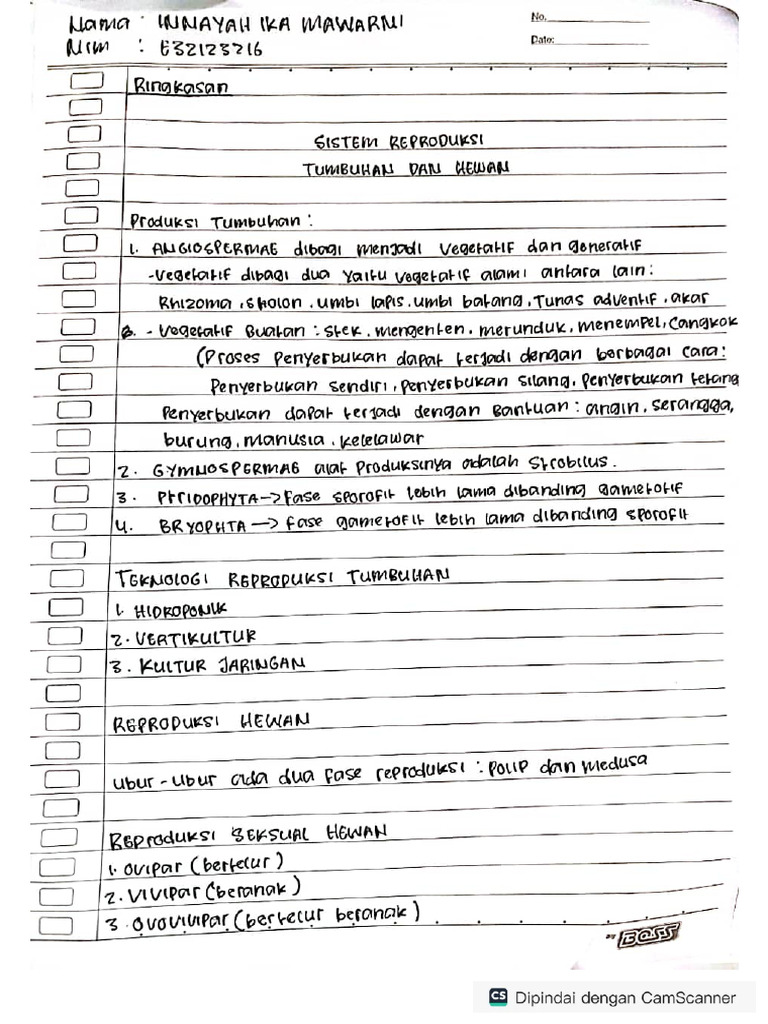 Nama : INNAYAH IKA MAWARNI
No.
NIM : E32123216
Date:
Ringkasan
SISTEM REPRODUKSI
TUMBUHAN DAN HEWAN
Produksi Tumbuhan :
1. ANGIOSPERMAE dibagi menjadi vegetatif dan generatif
-vegetatif dibagi dua yaitu vegetatif alami antara lain :
Rhizoma , stolon . umbi lapis . umbi batang , Tunas adventif . akar
- vegetatif Buatan : stek . mengenten . merunduk , menempel , cangkok
(Proses Penyerbukan dapat terjadi dengan berbagai cara :
Penyerbukan sendiri , penyerbukan silang , penyerbukan tetang
Penyerbukan dapat terjadi dengan Bantuan : angin , serangga ,
burung , manusia , kelelawar
2. GYMNOSPERMAE alat Produksinya adalah Strobilus .
3. PTRIDOPHYTA -> Fase sporofit lebih lama dibanding gametofif
4. BRYOPHTA -> fase gametofit lebih lama dibanding sporofit
TEKNOLOGI REPRODUKSI TUMBUHAN
1. HIDROPONIK
2. VERTIKULTUR
3. KULTUR JARINGAN
REPRODUKSI HEWAN
Ubur - Ubur ada dua fase reproduksi : POLIP dan medusa
REPRODUKSI SEKSUAL HEWAN
1. OVIPAR (bertelur)
2. VIVIPAR (beranak)
3. OVOVIVIPAR (bertelur beranak)
BY BOSS
CS Dipindai dengan CamScanner